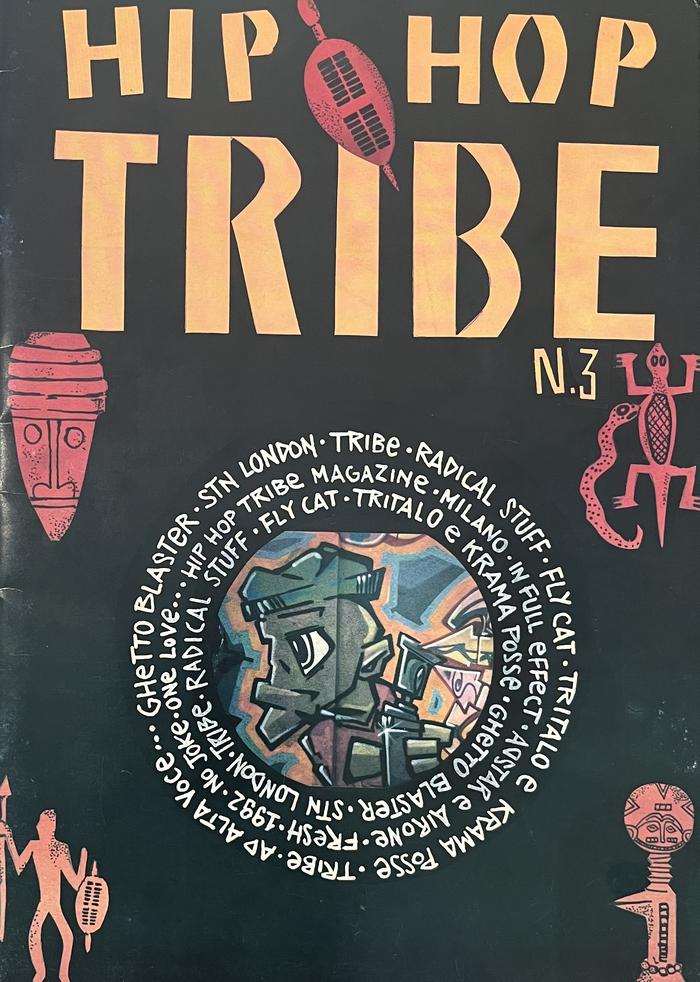 HIP HOP
TRIBE
N.3
GHETTO BLASTER · STN LONDON · TRIBE · RADICAL STUFF · FLY CAT · TRITALO e KRAMA POSSE · TRIBE · AD ALTA VOCE...
ONE LOVE... HIP HOP TRIBE MAGAZINE · MILANO · IN FULL EFFECT · AOSTAR e AIRONE · FRESH · 1992 · NO JOKE ·
RADICAL STUFF · FLY CAT · TRITALO e KRAMA POSSE · GHETTO BLASTER · STN LONDON · TRIBE ·